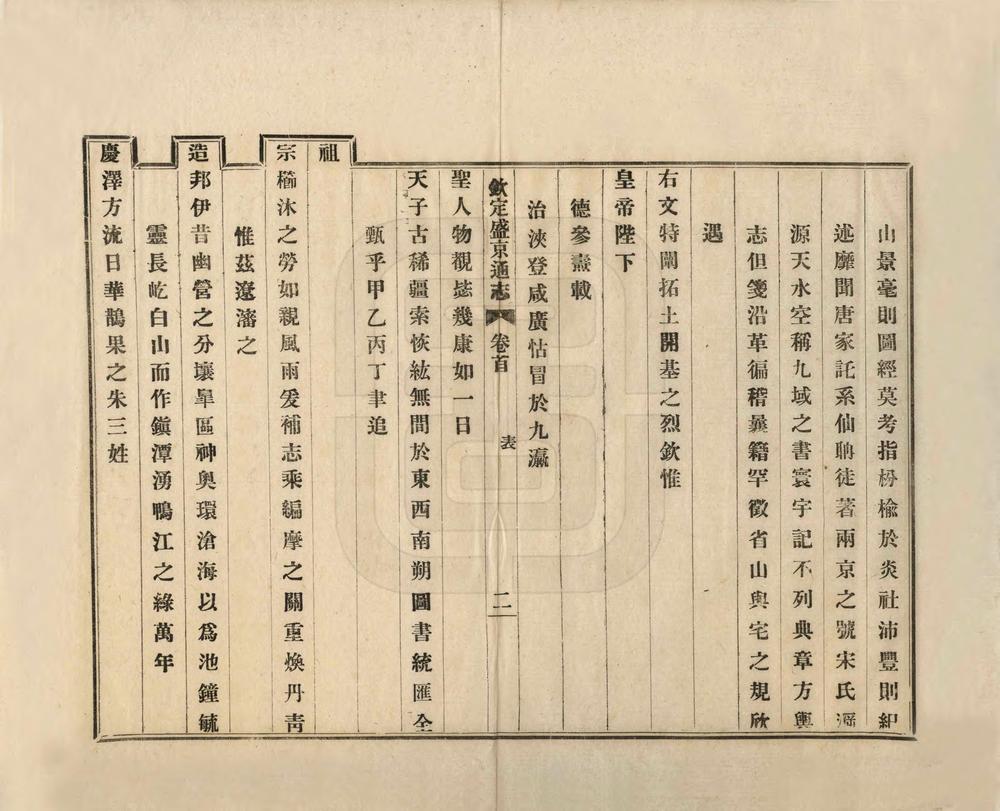 山景亳則圖經莫考指枌楡於炎社沛豐則紀
述靡聞唐家託系仙聃徒著兩京之號宋氏溯
源天水空稱九域之書寰宇記不列典章方輿
志但箋沿革徧稽彝籍罕徵省山與宅之規欣
遇
右文特闡拓土開基之烈欽惟
皇帝陛下
德參燾載
治浹登咸廣怙冒於九瀛
欽定盛京通志 卷首 表 二
聖人物覩毖幾康如一日
天子古稀疆索恢紘無間於東西南朔圖書統匯全
甄乎甲乙丙丁聿追
祖
宗櫛沐之勞如親風雨爰補志乘編摩之闕重煥丹靑
惟茲遼瀋之
造邦伊昔幽營之分壤睾區神奧環滄海以爲池鐘毓
靈長屹白山而作鎭潭湧鴨江之綠萬年
慶澤方流日華鵲果之朱三姓